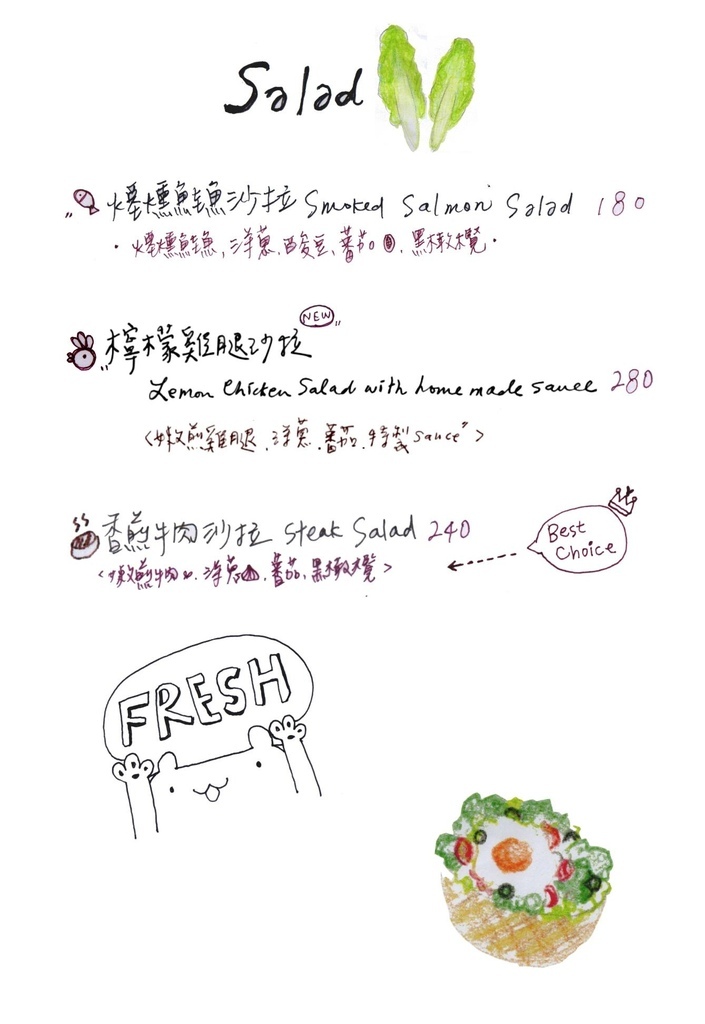 Salad
煙燻鮭魚沙拉 Smoked Salmon Salad 180
・煙燻鮭魚, 洋蔥, 酸豆, 蕃茄, 黑橄欖・
NEW
檸檬雞腿沙拉
Lemon Chicken Salad with home made sauce 280
<嫩煎雞腿, 洋蔥, 蕃茄, 特製 sauce">
香煎牛肉沙拉 Steak Salad 240
<嫩煎牛肉, 洋蔥, 蕃茄, 黑橄欖>
Best
Choice
FRESH